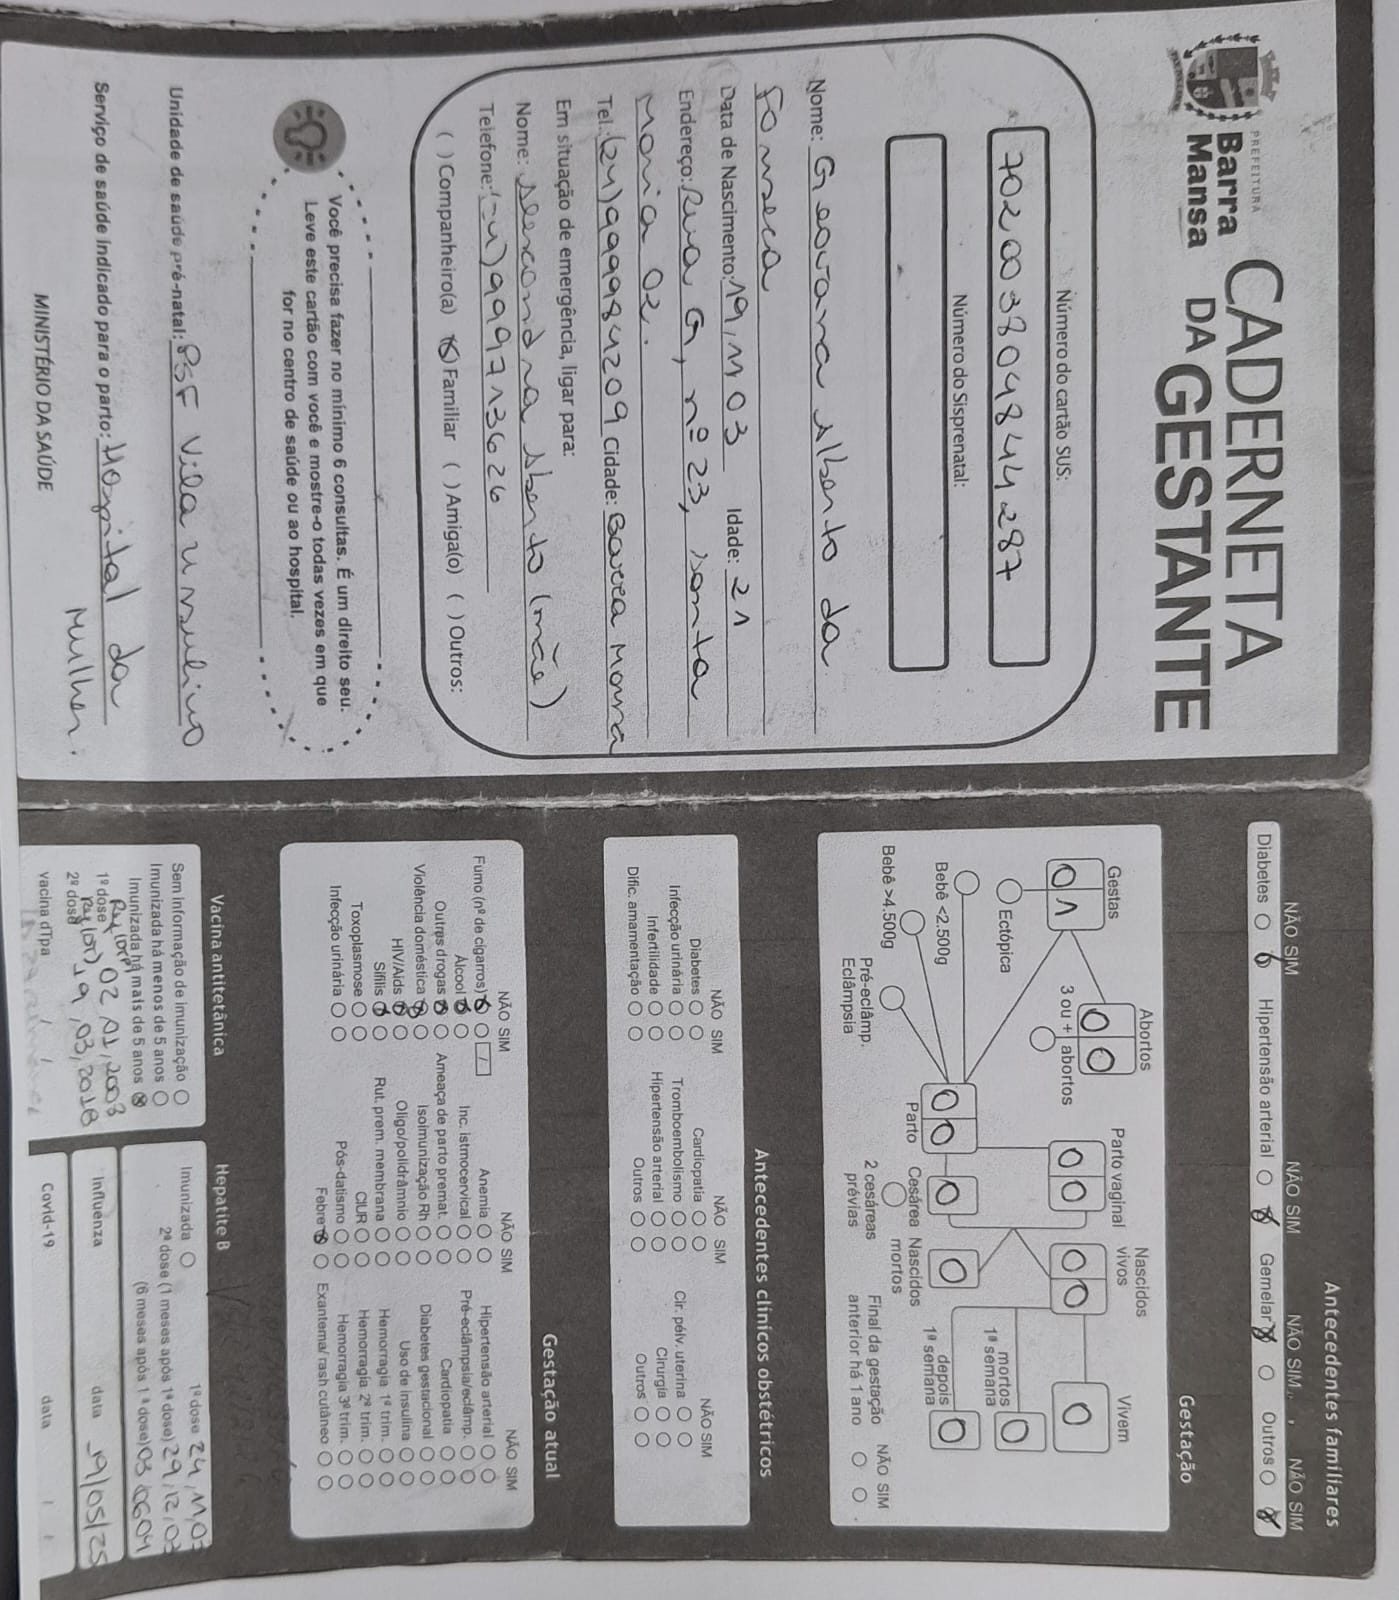 PREFEITURA
Barra
Mansa
CADERNETA
DA GESTANTE
Número do cartão SUS:
7020033804844287
Número do Sisprenatal:
Nome: Geovana Alberto da
Fonseca
Data de Nascimento: 19, 11 03 Idade: 21
Endereço: Rua G, nº 23, Santa
Maria 02.
Tel.: (24) 999984209 Cidade: Barra Mansa
Em situação de emergência, ligar para:
Nome: Alexandra Alberto (mãe)
Telefone: (24) 999713626
( ) Companheiro(a) (X) Familiar ( ) Amiga(o) ( ) Outros:
Você precisa fazer no mínimo 6 consultas. É um direito seu.
Leve este cartão com você e mostre-o todas vezes em que
for no centro de saúde ou ao hospital.
Unidade de saúde pré-natal: PSF Vila Ursulino
Serviço de saúde indicado para o parto: Hospital da
Mulher.
MINISTÉRIO DA SAÚDE
Antecedentes familiares
NÃO SIM NÃO SIM NÃO SIM NÃO SIM
Diabetes Hipertensão arterial Gemelar Outros
Gestação
Gestas
0 1
Abortos
0 0
Parto vaginal
0 0
Nascidos vivos
0 0
Vivem
0
Ectópica
3 ou + abortos
mortos 1ª semana
0
Bebê <2.500g
Parto
0 0
Cesárea
0
Nascidos mortos
0
depois 1ª semana
0
Bebê >4.500g
Pré-eclâmp.
Eclâmpsia
2 cesáreas
prévias
Final da gestação
anterior há 1 ano
NÃO SIM
Antecedentes clínicos obstétricos
NÃO SIM NÃO SIM NÃO SIM
Diabetes Cardiopatia Cir. pélv. uterina
Infecção urinária Tromboembolismo Cirurgia
Infertilidade Hipertensão arterial Outros
Dific. amamentação Outros
Gestação atual
NÃO SIM NÃO SIM NÃO SIM
Fumo (nº de cigarros) Anemia Hipertensão arterial
Álcool Inc. istmocervical Pré-eclâmpsia/eclâmp.
Outras drogas Ameaça de parto premat. Cardiopatia
Violência doméstica Isoimunização Rh Diabetes gestacional
HIV/Aids Oligo/polidrâmnio Uso de insulina
Sífilis Rut. prem. membrana Hemorragia 1º trim.
Toxoplasmose CIUR Hemorragia 2º trim.
Infecção urinária Pós-datismo Hemorragia 3º trim.
Febre Exantema/ rash cutâneo
Vacina antitetânica
Sem informação de imunização
Imunizada há menos de 5 anos
Imunizada há mais de 5 anos
1ª dose 02, 01, 2003
2ª dose 19, 03, 2018
vacina dTpa / /
Hepatite B
Imunizada 1ª dose 24, 11, 03
2ª dose (1 meses após 1ª dose) 29, 12, 03
(6 meses após 1ª dose) 03 06 04
Influenza data 19/05/25
Covid-19 data / /